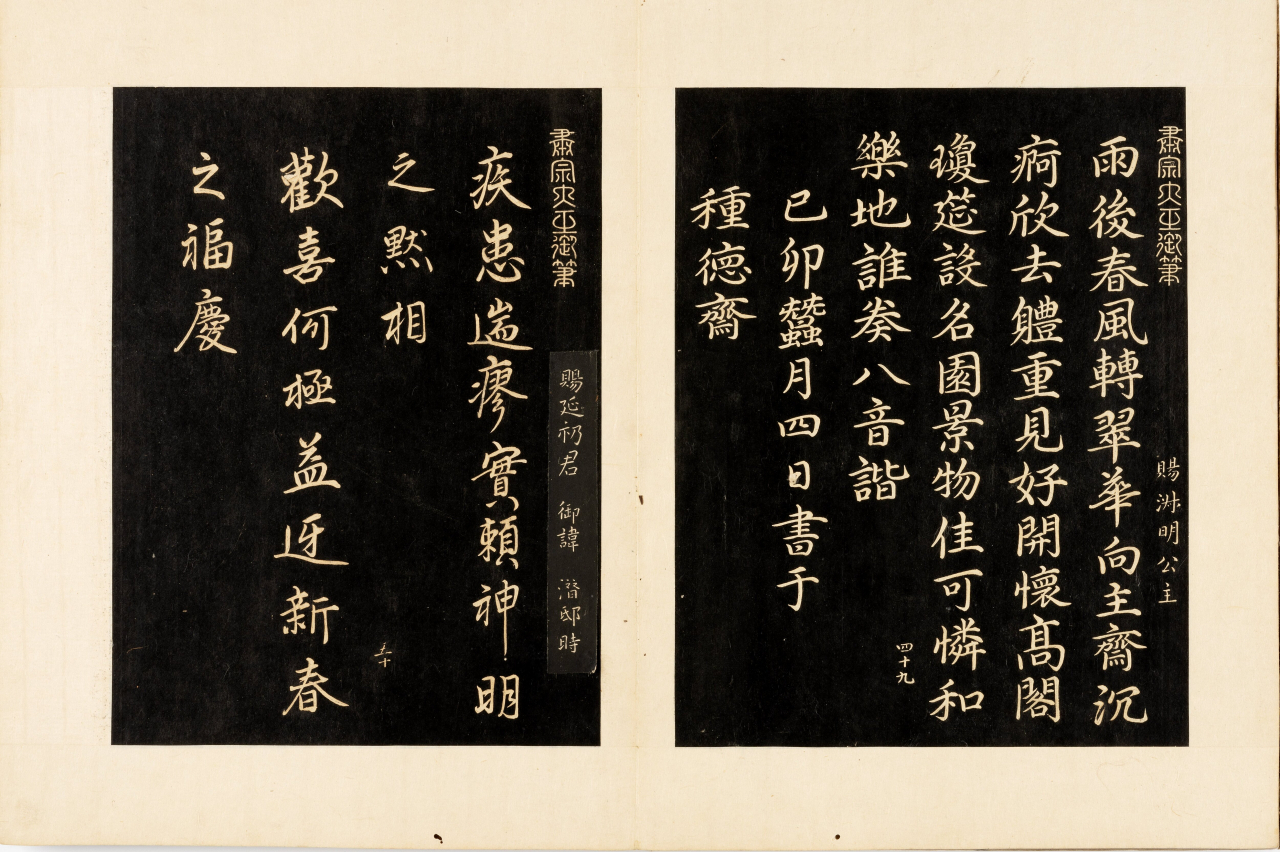 肅宗大王御筆
賜淑明公主
雨後春風轉翠華向主齋沉
痾欣去體重見好開懷高閣
瓊莚設名園景物佳可憐和
樂地誰奏八音諧
己卯蠶月四日書于
種德齋
四十九
肅宗大王御筆
賜延礽君 御諱 潛邸時
疾患遄瘳實賴神明
之黙相
歡喜何極益迓新春
之福慶
五十